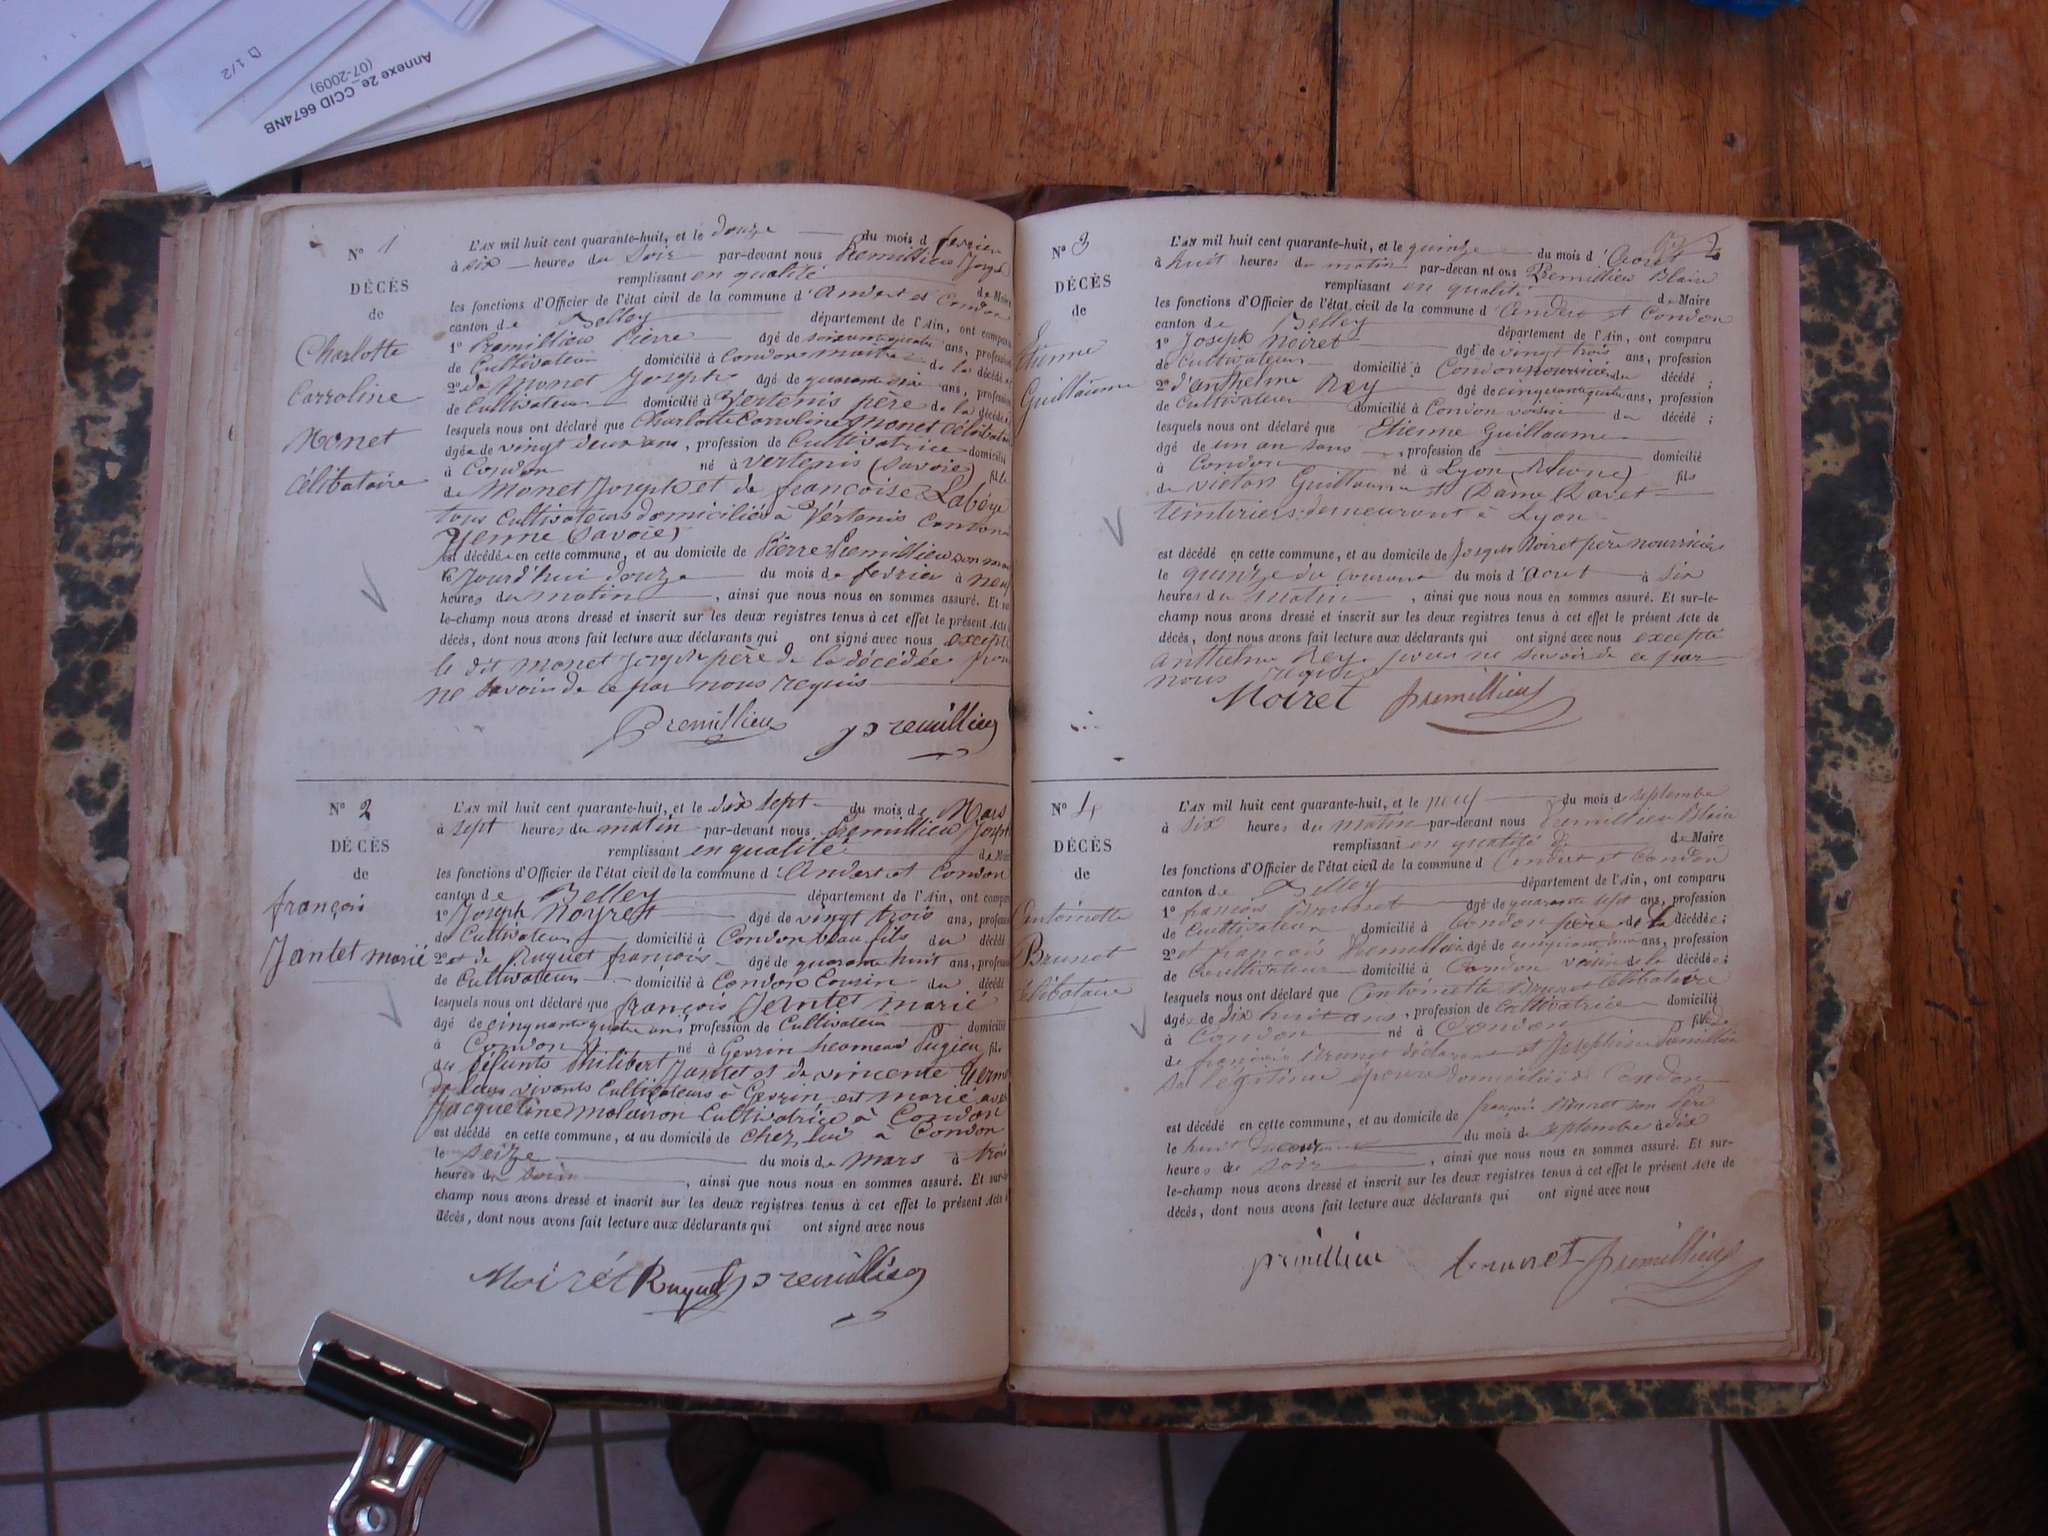 Annexe 2e_CCID 6674NB
(07-2009)
D 1/2
N° 1
DÉCÈS
de
Charlotte
Carroline
Monet
célibataire
L'AN mil huit cent quarante-huit, et le douze du mois d fevrier
à six heures du soir par-devant nous Premillieu Joseph
remplissant en qualité de Maire
les fonctions d'Officier de l'état civil de la commune d'Andert et Condon
canton de Belley département de l'Ain, ont comparu
1° Premillieu Pierre agé de soixante quatre ans, profession
de Cultivateur domicilié à Condon maitre de la décédée
2° de Monet Joseph agé de quarante six ans, profession
de Cultivateur domicilié à Vertenis père de la décédée
lesquels nous ont déclaré que Charlotte Caroline Monet célibataire
agée de vingt deux ans, profession de Cultivatrice domicilié
à Condon né à Vertenis (Savoie) fille
de Monet Joseph et de françoise Labeye
tous cultivateurs domiciliés à Vertenis Canton
Yenne (Savoie)
est décédée en cette commune, et au domicile de Pierre Premillieu son
le Jourd'hui douze du mois de fevrier à neuf
heures du matin, ainsi que nous nous en sommes assuré. Et sur-
le-champ nous avons dressé et inscrit sur les deux registres tenus à cet effet le présent Acte
décès, dont nous avons fait lecture aux déclarants qui ont signé avec nous excepté
le dit Monet Joseph père de la décédée pour
ne savoir de ce par nous requis
Premillieu premillieu
N° 2
DÉCÈS
de
françois
Jantet marié
L'AN mil huit cent quarante-huit, et le dix sept du mois de Mars
à sept heures du matin par-devant nous Premillieu Joseph
remplissant en qualité de Maire
les fonctions d'Officier de l'état civil de la commune d'Andert et Condon
canton de Belley département de l'Ain, ont comparu
1° Joseph Noyret agé de vingt trois ans, profession
de Cultivateur domicilié à Condon beau fils du décédé
2° et de Ruguet francois agé de quarante huit ans, profession
de Cultivateur domicilié à Condon Cousin du décédé
lesquels nous ont déclaré que françois Jentet marié
agé de cinquante quatre ans profession de Cultivateur domicilié
à Condon né à Gevrin hameau Pugieu fils
du défunts Philibert Jantet et de vincente
de leur vivants Cultivateurs à Gevrin est marié avec
Jacqueline Cultivatrice à Condon
est décédé en cette commune, et au domicile de chez lui à Condon
le seize du mois de mars à trois
heures du soir, ainsi que nous nous en sommes assuré. Et sur-le-
champ nous avons dressé et inscrit sur les deux registres tenus à cet effet le présent Acte
décès, dont nous avons fait lecture aux déclarants qui ont signé avec nous
Moirét Ruguet premillieu
N° 3
DÉCÈS
de
Etienne
Guillaume
2
L'AN mil huit cent quarante-huit, et le quinze du mois d'Aout
à huit heures du matin par-devant nous Premillieu Blaise
remplissant en qualité de Maire
les fonctions d'Officier de l'état civil de la commune d'Andert et Condon
canton de Belley département de l'Ain, ont comparu
1° Joseph Noiret agé de vingt trois ans, profession
de Cultivateur domicilié à Condon nourricier du décédé ;
2° d'anthelme Rey agé de cinquante quatre ans, profession
de Cultivateur domicilié à Condon voisin du décédé ;
lesquels nous ont déclaré que Etienne Guillaume
agé de un an sans, profession de domicilié
à Condon né à Lyon (Rhone) fils
de victor Guillaume et Dame Ravet
teinturiers demeurant à Lyon
est décédé en cette commune, et au domicile de Joseph Noiret père nourricier
le quinze du courant du mois d'Aout à six
heures du matin, ainsi que nous nous en sommes assuré. Et sur-le-
champ nous avons dressé et inscrit sur les deux registres tenus à cet effet le présent Acte de
décès, dont nous avons fait lecture aux déclarants qui ont signé avec nous excepté
anthelme Rey pour ne savoir de ce par
nous requis
Moiret premillieu
N° 4
DÉCÈS
de
Antoinette
Brunet
célibataire
L'AN mil huit cent quarante-huit, et le neuf du mois de septembre
à six heures du matin par-devant nous Premillieu Blaise
remplissant en qualité de Maire
les fonctions d'Officier de l'état civil de la commune d'Andert et Condon
canton de Belley département de l'Ain, ont comparu
1° françois Brunet agé de quarante sept ans, profession
de Cultivateur domicilié à Condon père de la décédée ;
2° et françois Premillieu agé de ans, profession
de Cultivateur domicilié à Condon voisin de la décédée ;
lesquels nous ont déclaré que Antoinette Brunet célibataire
agée de dix huit ans, profession de Cultivatrice domicilié
à Condon né à Condon fille
de françois Brunet déclarant et Josephine Premillieu
sa légitime épouse domiciliés à Condon
est décédé en cette commune, et au domicile de françois Brunet son père
le huit du courant du mois de septembre à dix
heures du soir, ainsi que nous nous en sommes assuré. Et sur-
le-champ nous avons dressé et inscrit sur les deux registres tenus à cet effet le présent Acte de
décès, dont nous avons fait lecture aux déclarants qui ont signé avec nous
premillieu brunet premillieu